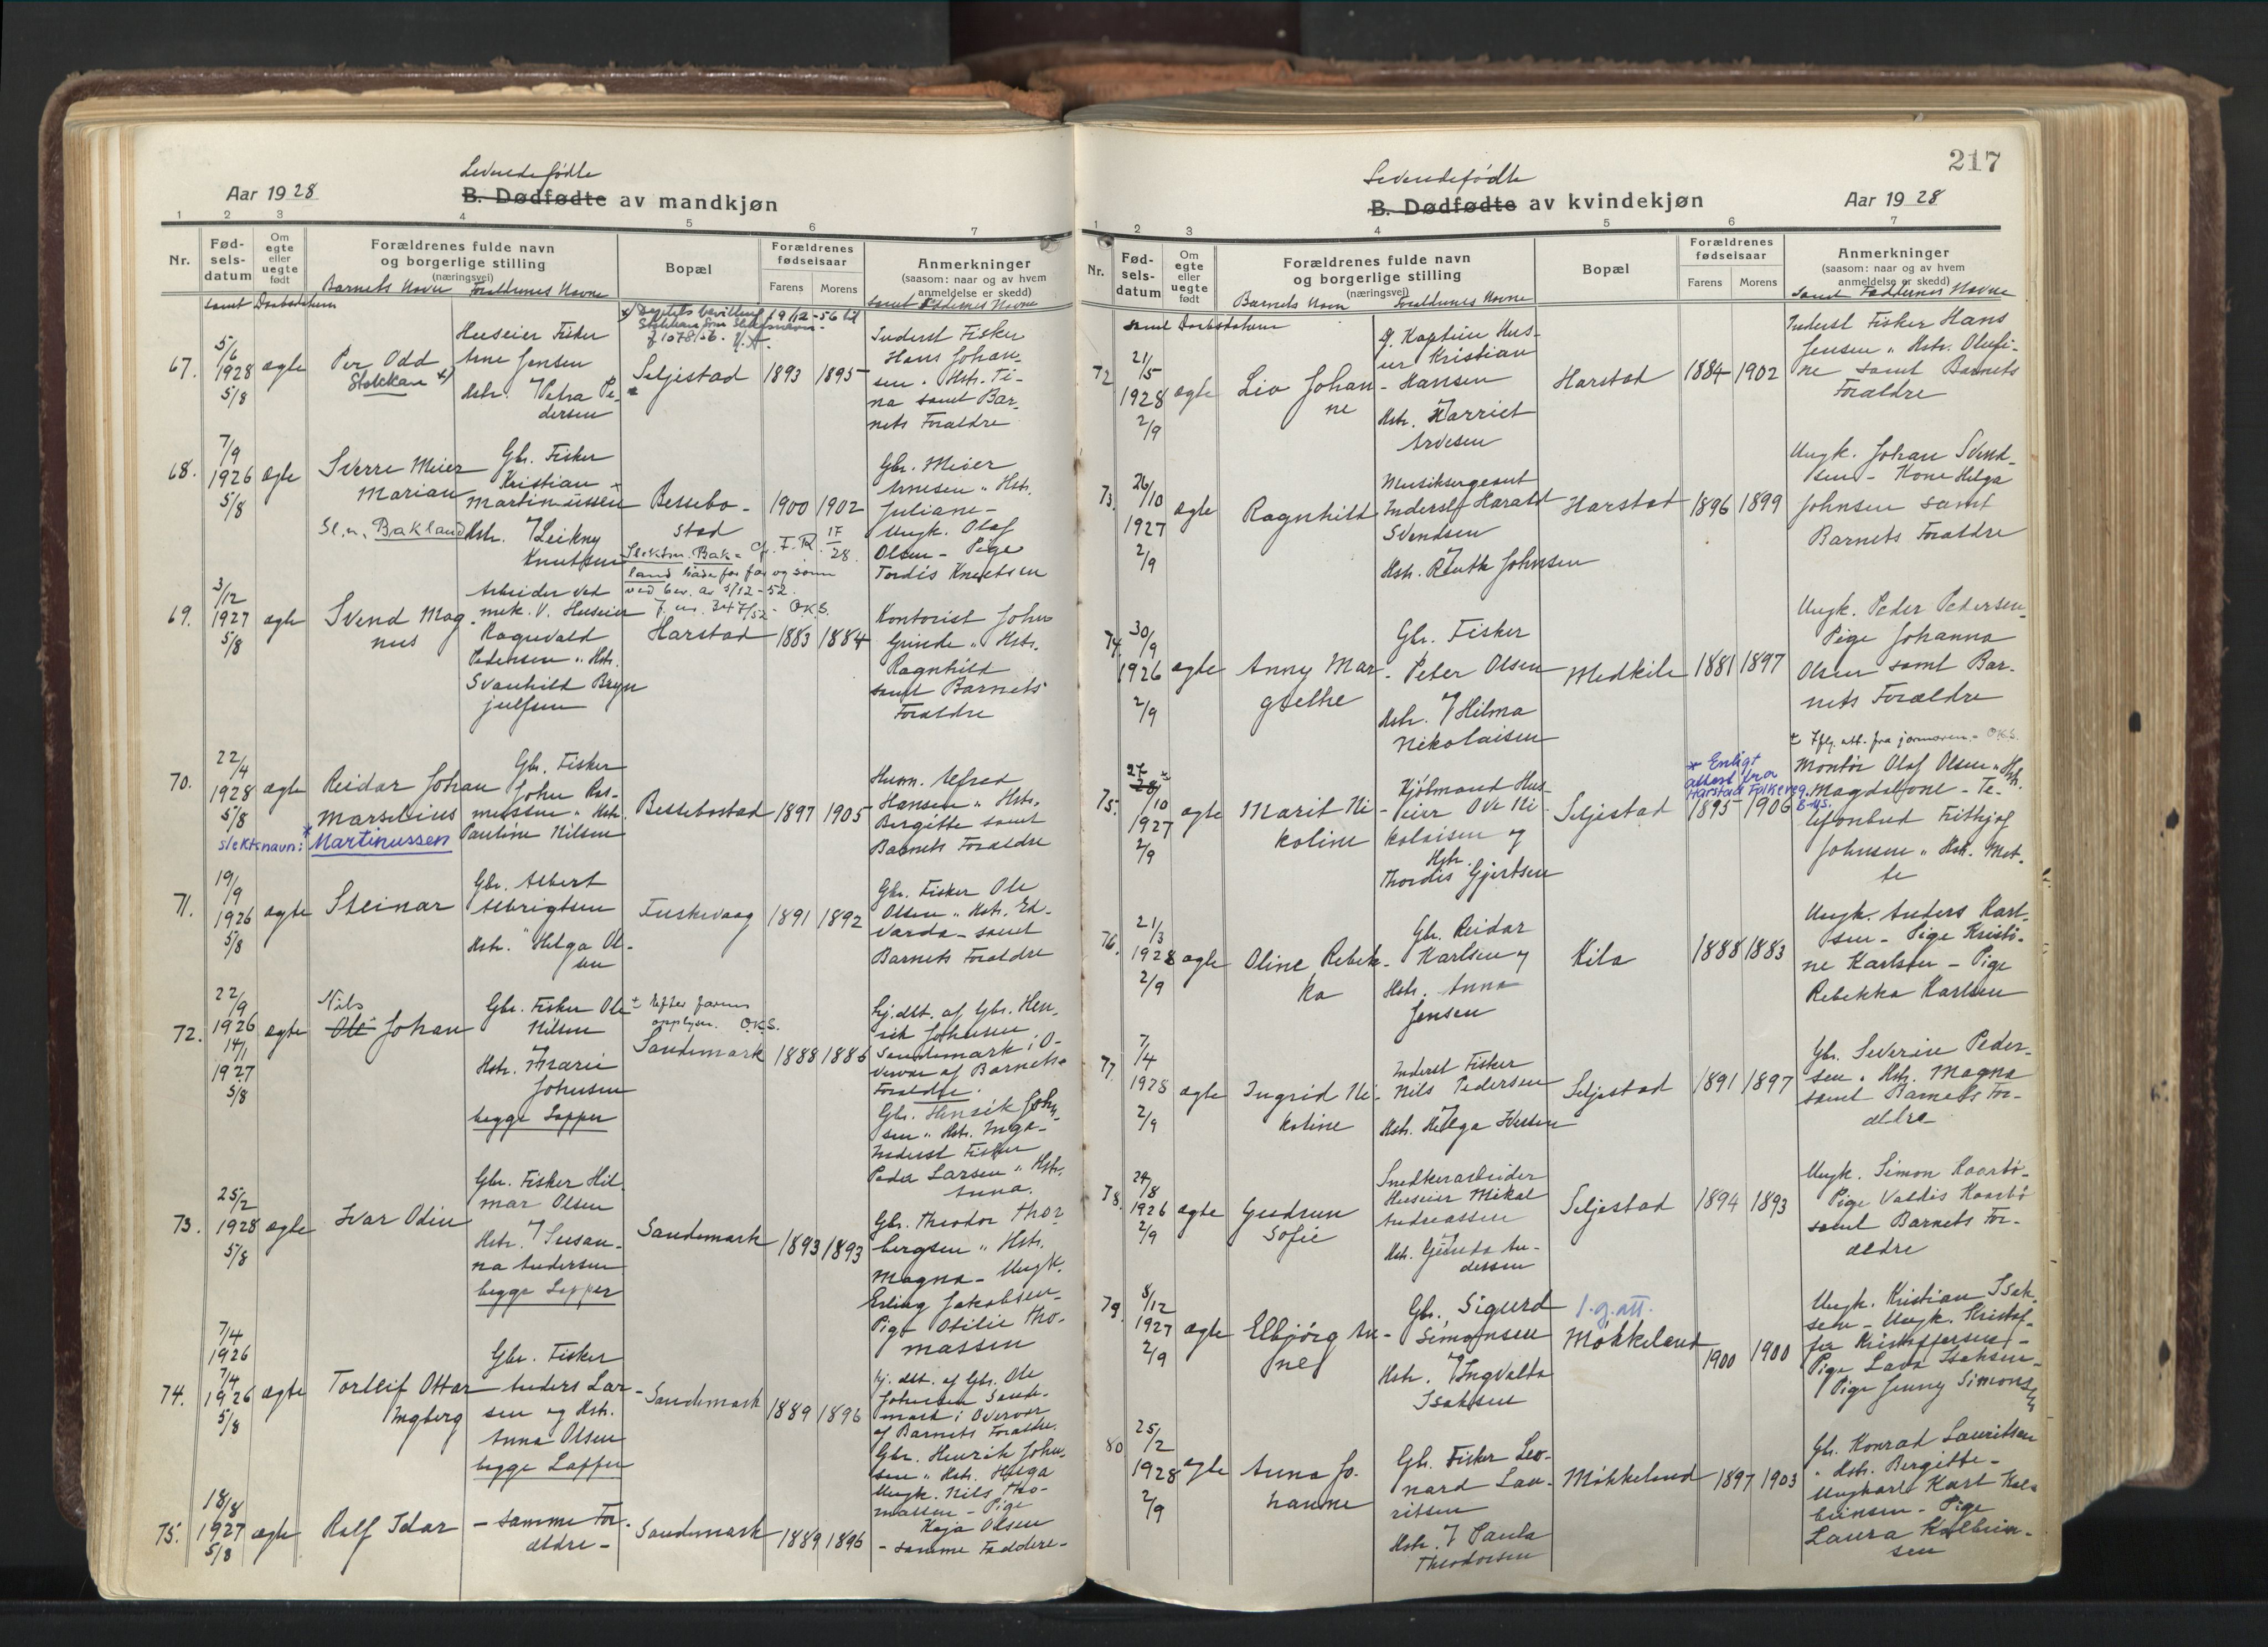 Levendefødte
Aar 1928 B. Dødfødte av mandkjøn
1 2 3 4 5 6 7
Nr. Fød-selsdatum Om egte eller uegte født Forældrenes fulde navn og borgerlige stilling (næringsvei) Bopæl Forældrenes fødselsaar Farens Morens Anmerkninger (saasom: naar og av hvem anmeldelse er skedd)
samt Daabsdatum Barnets Navn Forældrenes Navne samt Faddernes Navne
67. 5/6 1928 5/8 ægte
Per Odd
Stokkan x)
Huseier Fisker
Arne Jensen
Hstr. Petra Pe-
dersen
Seljestad 1893 1895
Inderst Fisker
Hans Johan-
sen. Hstr. Ti-
na samt Bar-
nets Forældre
68. 7/9 1926 5/8 ægte
Sverre Meier
Marian
Sl.n. Bakland
Gbr. Fisker
Kristian
Martinussen
Hstr. Leikny
Knutsen
Bessebo-
stad
1900 1902
Slektsn. Bak-
land både for far og sønn
ved bev. av 5/12-52.
J. nr. 347/52 - O.K.S.
Gbr. Meier
Arnesen " Hstr.
Juliane -
Ungk. Olaf
Olsen - Pige
Tordis Knutsen
69. 3/12 1927 5/8 ægte
Svend Mag-
nus
Arbeider ved
mek. V. Huseier
Ragnvald
Pedersen " Hstr.
Svanhild Bryn
julfsen
Harstad 1883 1884
Kontorist John
Grinde " Hstr.
Ragnhild
samt Barnets
Forældre
70. 22/4 1928 5/8 ægte
Reidar Johan
Marselius
slektsnavn: Martinussen
Gbr. Fisker
John Ras-
mussen " Hstr.
Pauline Nilsen
Bessebostad 1897 1905
Husm. Alfred
Hansen " Hstr.
Bergitte samt
Barnets Forældre
71. 19/9 1926 5/8 ægte
Steinar
Gbr. Albert
Albrigtsen
Hstr. " Helga Ol-
sen
Fuskevaag 1891 1892
Gbr. Fisker Ole
Olsen " Hstr. Ed-
varda - samt
Barnets Forældre
72. 22/9 1926 14/1 1927 5/8 ægte
Nils
Ole Johan
Gbr. Fisker Ole
Nilsen
Hstr. Marie
Johnsen
begge Lapper
± Efter farens
opplysn. O.K.S.
Sandemark 1888 1886
Hj.dbt. af Gbr. Hen-
rik Johnsen
Sandemark i O-
vervær af Barnets
Forældre.
Gbr. Henrik John-
sen " Hstr. Inga -
Inderst Fisker
Peder Larsen " Hstr.
Anna.
73. 25/2 1928 5/8 ægte
Ivar Odin
Gbr. Fisker Hil-
mar Olsen
Hstr. Susan-
na Andersen
begge Lapper
Sandemark 1893 1893
Gbr. Theodor Thor-
bergsen " Hstr.
Magna - Ungk.
Erling Jakobsen -
Pige Otilie Tho-
massen
74. 7/4 1926 7/4 1926 5/8 ægte
Torleif Ottar
Ingberg
Gbr. Fisker
Anders Lar-
sen og Hstr.
Anna Olsen
begge Lapper
Sandemark 1889 1896
Hj. dbt. af Gbr. Ole
Johnsen Sande-
mark i Overvær
af Barnets Forældre.
Gbr. Henrik John-
sen " Hstr. Helga
Ungk. Nils Tho-
massen - Pige
Kaja Olsen
75. 18/8 1927 5/8 ægte
Rolf Idar
- samme For-
ældre -
Sandemark 1889 1896
- samme Faddere -
217
Levendefødte
B. Dødfødte av kvindekjøn Aar 1928
1 2 3 4 5 6 7
Nr. Fød-selsdatum Om egte eller uegte født Forældrenes fulde navn og borgerlige stilling (næringsvei) Bopæl Forældrenes fødselsaar Farens Morens Anmerkninger (saasom: naar og av hvem anmeldelse er skedd)
samt Daabsdatum Barnets Navn Forældrenes Navne samt Faddernes Navne
72 21/5 1928 2/9 ægte
Liv Johan-
ne
Kaptein Hus-
eier Kristian
Hansen
Hstr. Harriet
Arvesen
Harstad 1884 1902
Inderst Fisker Hans
Jensen " Hstr. Olufi-
ne samt Barnets
Forældre
73. 26/10 1927 2/9 ægte
Ragnhild
Musiksergeant
Inderst Harald
Svendsen
Hstr. Ruth Johnsen
Harstad 1896 1899
Ungk. Johan Svend-
sen - Kone Helga
Johnsen samt
Barnets Forældre
74. 30/9 1926 2/9 ægte
Anny Mar-
grethe
Gbr. Fisker
Peter Olsen
Hstr. Hilma
Nikolaisen
Medkile 1881 1897
Ungk. Peder Pedersen -
Pige Johanna
Olsen samt Bar-
nets Forældre
± Iflg. att. fra jormoren. - O.K.S.
75. 27/10 1927 2/9 ægte
Marit Ni-
koline
Kjøbmand Hus-
eier Ove Ni-
kolaisen og
Hstr.
Thordis Gjertsen
Seljestad 1895 1906
* Enligt
attest fra
Harstad Folkereg.
Montør Olaf Olsen " Hstr.
Magdalone - Te-
lefonbud Fridtjof
Johnsen " Hstr. Met-
te
76. 21/3 1928 2/9 ægte
Oline Rebek-
ka
Gbr. Reidar
Karlsen og
Hstr. Anna
Jensen
Kila 1888 1883
Ungk. Anders Karl-
sen - Pige Kristi-
ne Karlsen - Pige
Rebekka Karlsen
77. 7/4 1928 2/9 ægte
Ingrid Ni-
koline
Inderst Fisker
Nils Pedersen
Hstr. Helga Iversen
Seljestad 1891 1897
Gbr. Severin Peder-
sen " Hstr. Magna
samt Barnets For-
ældre
78. 24/8 1926 2/9 ægte
Gudrun
Sofie
Snedkerarbeider
Huseier Mikal
Andreassen
Hstr. Gunda An-
dersen
Seljestad 1894 1893
Ungk. Simon Kaarbø -
Pige Valdis Kaarbø
samt Barnets For-
ældre
79. 8/12 1927 2/9 ægte
Elbjørg An-
ne
Gbr. Sigurd
Simonsen
Hstr. Ingvalda
Isaksen
1.g.att.
Møkkeland 1900 1900
Ungk. Kristian Isak-
sen - Ungk. Kristof-
fer Kristoffersen -
Pige Lava Isaksen -
Pige Jenny Simonsen
80 25/2 1928 2/9 ægte
Anna Jo-
hanne
Gbr. Fisker Leo-
nard Lau-
ritsen
Hstr. Paula
Theodorsen
Møkkeland 1897 1903
Gbr. Konrad Lauritsen
" Hstr. Bergitte -
Ungkarl Karl Kol-
beinsen - Pige
Laura Kolbein-
sen